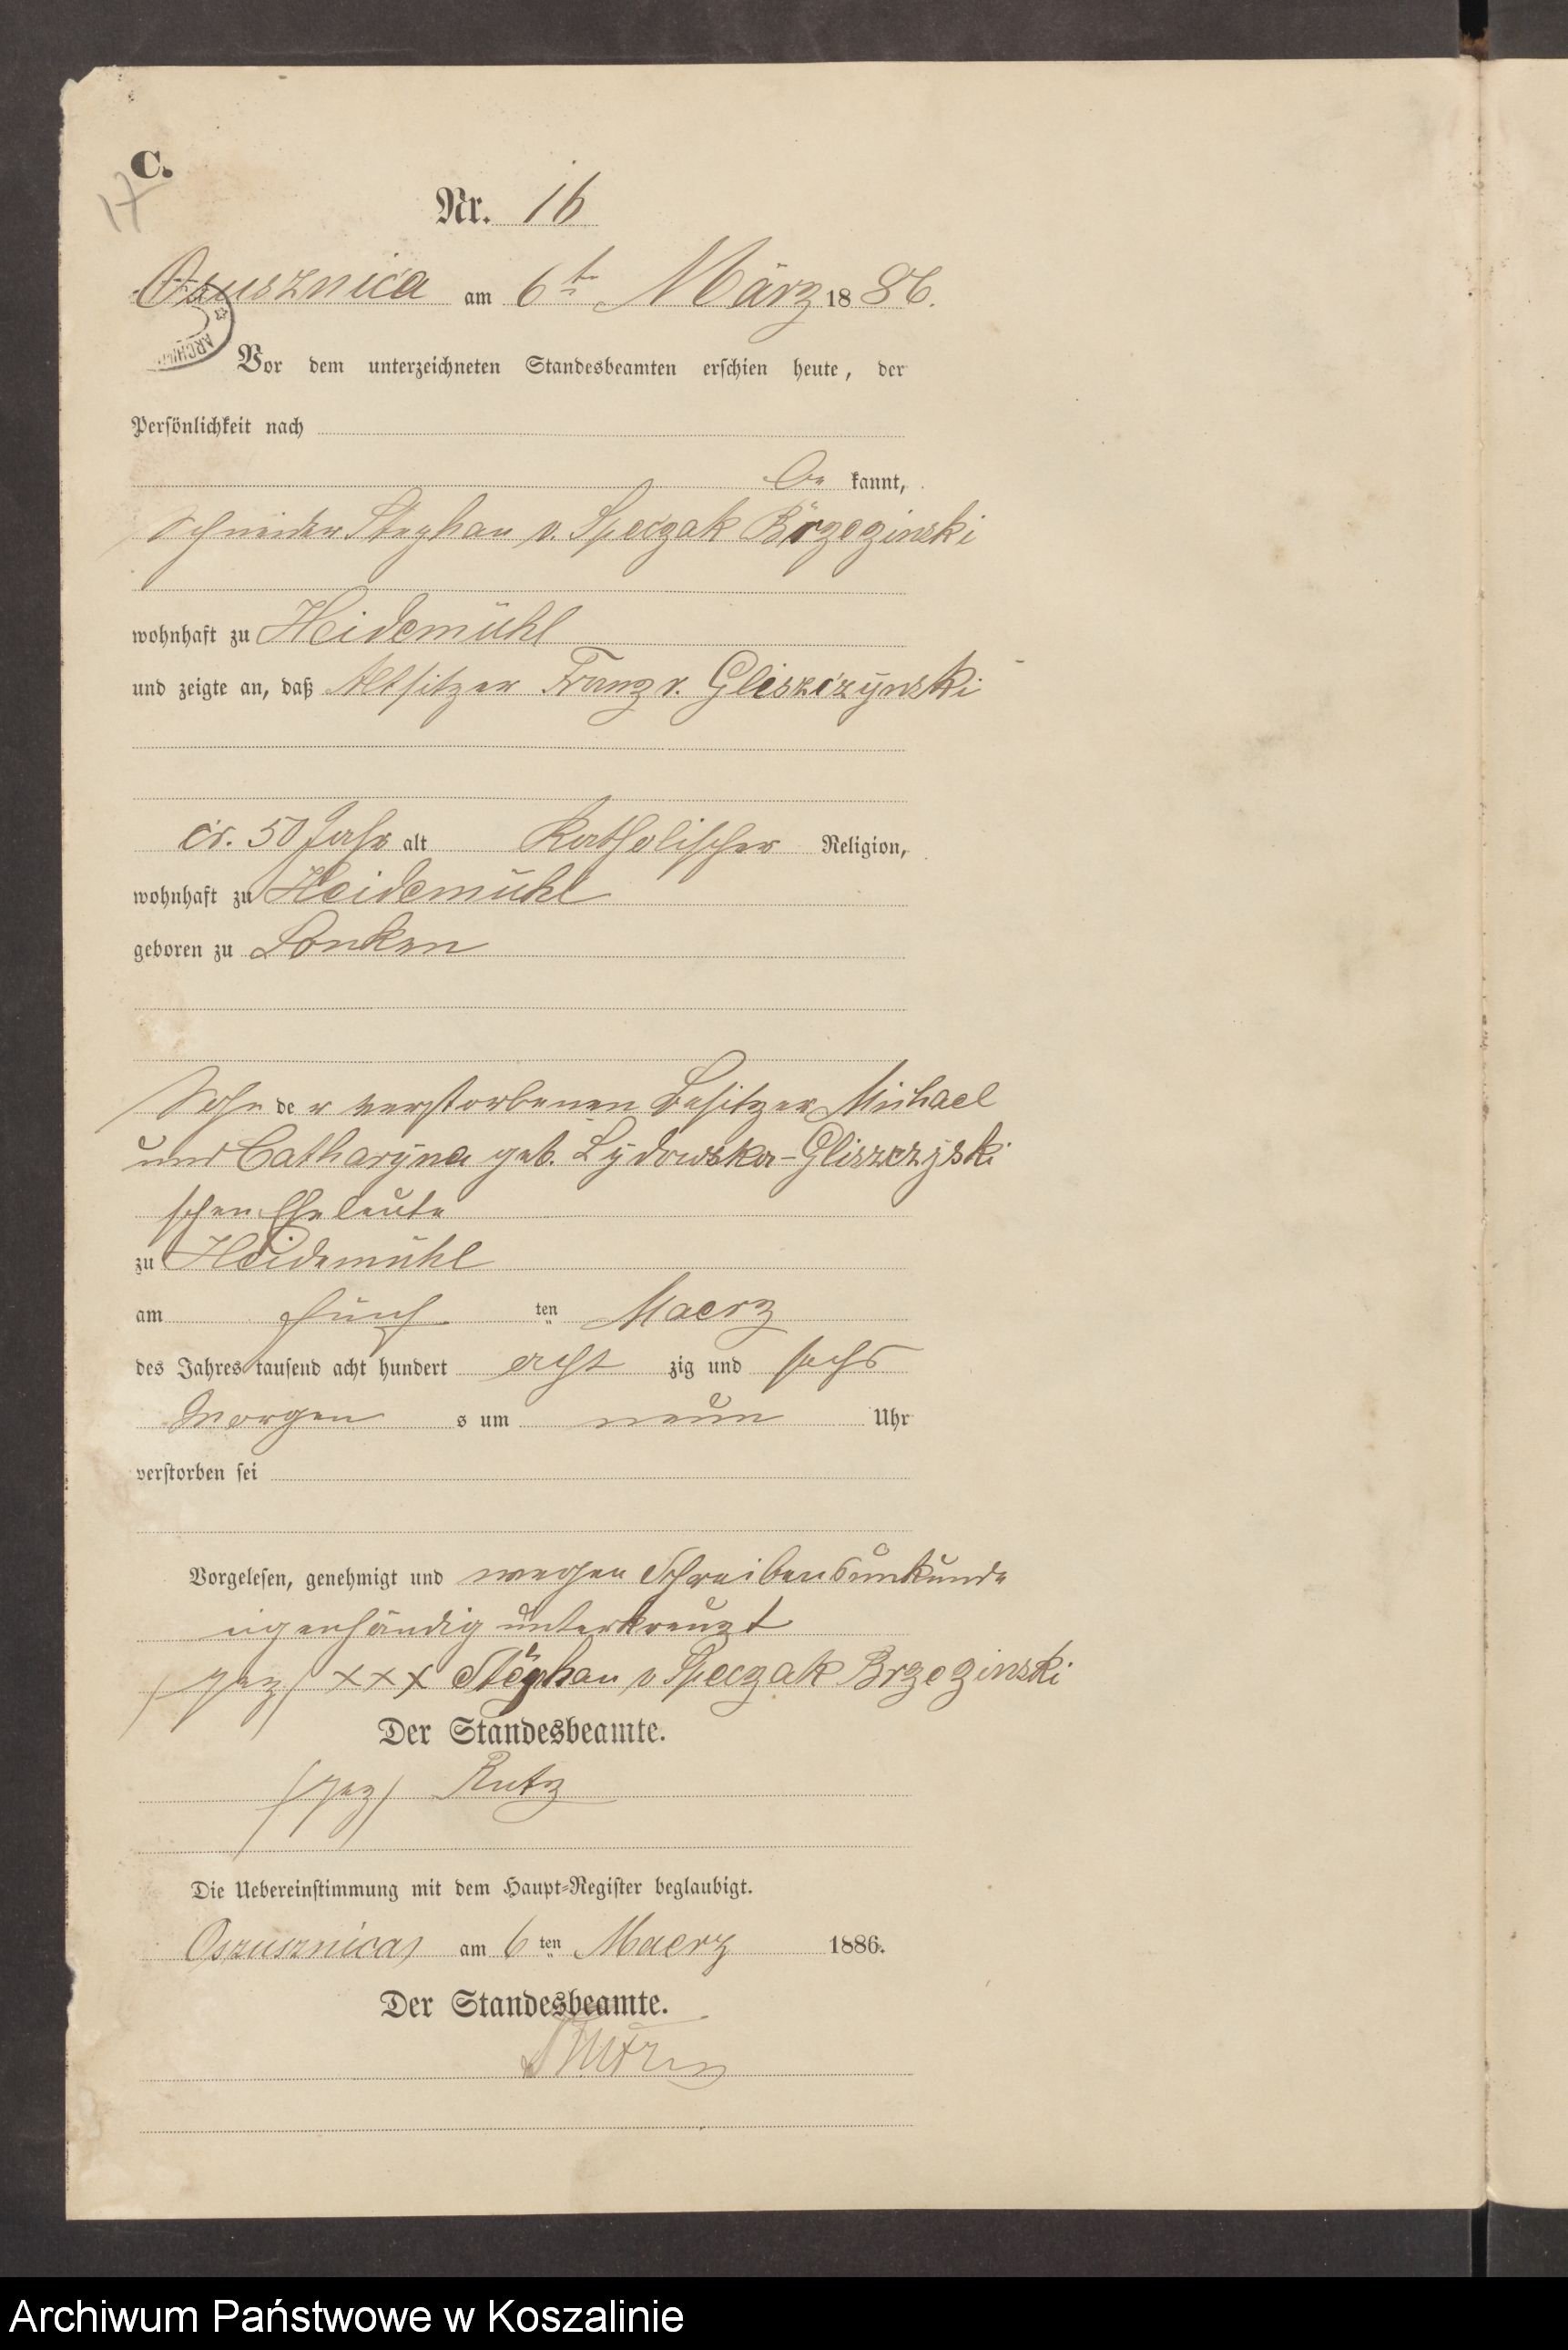 C.
17
Nr. 16
Osusznica am 6t. März 1886.
ARCHIW
Vor dem unterzeichneten Standesbeamten erschien heute, der
Persönlichkeit nach
be kannt,
Schneider Stephan v. Speczak Brzezinski
wohnhaft zu Heidemühl
und zeigte an, daß Altsitzer Franz v. Gliszczynski
cir. 50 Jahr alt Katholischer Religion,
wohnhaft zu Heidemühl
geboren zu Lonken
Sohn der verstorbenen Besitzer Michael
und Catharÿna geb. Lÿdowska-Gliszczÿski
schen Eheleute
zu Heidemühl
am fünf ten Maerz
des Jahres tausend acht hundert acht zig und sechs
Morgen s um neun Uhr
verstorben sei
Vorgelesen, genehmigt und wegen Schreibensunkunde
eigenhändig unterkreuzt
(gez) xxx Stephan v Speczak Brzezinski
Der Standesbeamte.
(gez) Rutz
Die Uebereinstimmung mit dem Haupt-Register beglaubigt.
Oszusznica am 6 ten Maerz 1886.
Der Standesbeamte.
Archiwum Państwowe w Koszalinie